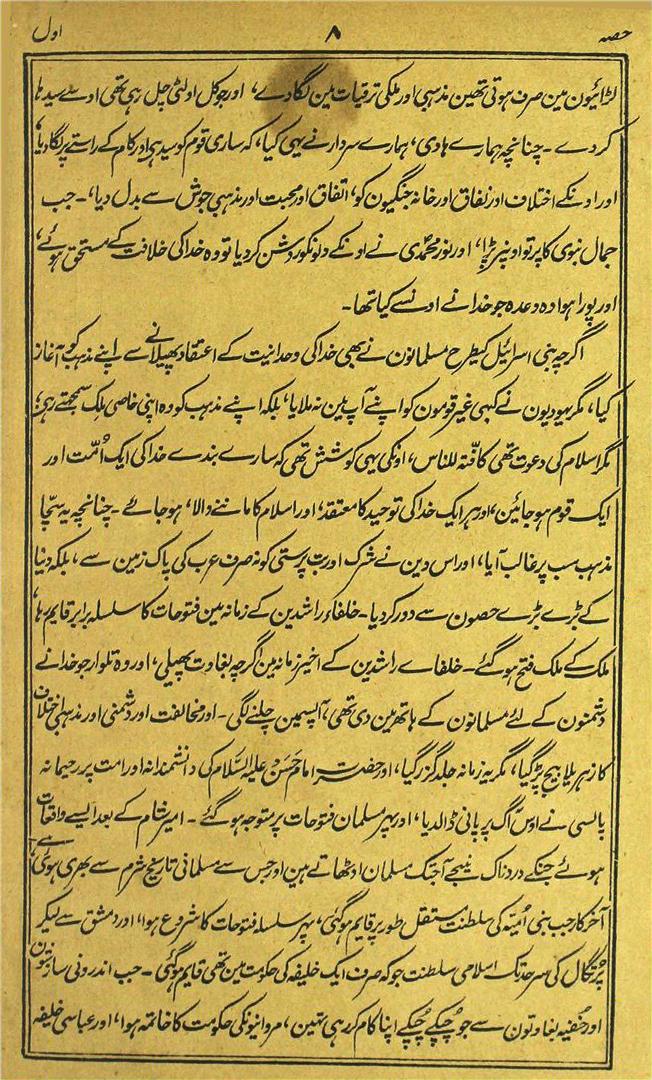 حصہ ۸ اول
لڑائیون مین صرف ہوتی تھین مذہبی اور ملکی ترقیات مین لگا دے، اور جو کل اولٹی چل رہی تھی اوسے سیدہا
کر دے ۔ چنانچہ ہمارے ہادی، ہمارے سردار نے یہی کیا، کہ ساری قوم کو سیدہی اور کام کے راستے پر لگا دیا،
اور اونکے اختلاف اور نفاق اور خانہ جنگیون کو، اتفاق اور محبت اور مذہبی جوش سے بدل دیا،۔ جب
جمال نبوی کا پرتو اونپر پڑا، اور نور محمدؐی نے اونکے دلونکو روشن کر دیا تو وہ خدا کی خلافت کے مستحق ہوئے،
اور پورا ہوا وہ وعدہ جو خدا نے اونسے کیا تھا۔
اگرچہ بنی اسرائیل کیطرح مسلمانون نے بھی خدا کی وحدانیت کے اعتقاد پھیلانے سے اپنے مذہب کو آغاز
کیا، مگر یہودیون نے کبھی غیر قومون کو اپنے آپ مین نہ ملایا، بلکہ اپنے مذہب کو وہ اپنی خاص مِلک سمجھتے رہے؛
مگر اسلام کی دعوت تھی کافّتہ للناس، اونکی یہی کوشش تھی کہ سارے بندے خدا کی ایک اُمّت اور
ایک قوم ہو جائین، اور ہر ایک خدا کی توحید کا معتقد، اور اسلام کا ماننے والا، ہو جائے ۔ چنانچہ یہ سچّا
مذہب سب پر غالب آیا، اور اس دین نے شرک اور بت پرستی کو نہ صرف عرب کی پاک زمین سے، بلکہ دنیا
کے بڑے بڑے حصون سے دور کر دیا۔ خلفاء راشدین کے زمانہ مین فتوحات کا سلسلہ برابر قایم رہا،
ملک کے ملک فتح ہو گئے۔ خلفاے راشدین کے اخیر زمانہ مین اگرچہ بغاوت پھیلی، اور وہ تلوار جو خدا نے
دشمنون کے لئے مسلمانون کے ہاتھ مین دی تھی، آپسمین چلنے لگی۔ اور مخالفت اور دشمنی اور مذہبی اختلاف
کا زہریلا بیج پڑ گیا، مگر یہ زمانہ جلد گزر گیا، اور حضرت امام حَسَنؑ علیہ السَّلام کی دانشمندانہ اور امت پر رحیمانہ
پالسی نے اوس آگ پر پانی ڈالدیا، اور پہر مسلمان فتوحات پر متوجہ ہو گئے ۔ امیر شام کے بعد ایسے واقعات
ہوئے جنکے دردناک نتیجے آجتک مسلمان اوٹھاتے ہین اور جس سے مسلمانی تاریخ شرم سے بھری ہوئی ہے،
آخر کار جب بنی اُمیّہ کی سلطنت مستقل طور پر قایم ہو گئی، پہر سلسلہ فتوحات کا شروع ہوا، اور دمشق سے لیکر
پُرتگال کی سرحد تک اسلامی سلطنت جو کہ صرف ایک خلیفہ کی حکومت مین تھی قایم ہو گئی ۔ جب اندرونی سازشون
اور خُفیہ بغاوتون سے جو چُپکے چُپکے اپنا کام کر رہی تہین، مروانیونکی حکومت کا خاتمہ ہوا، اور عباسی خلیفہ